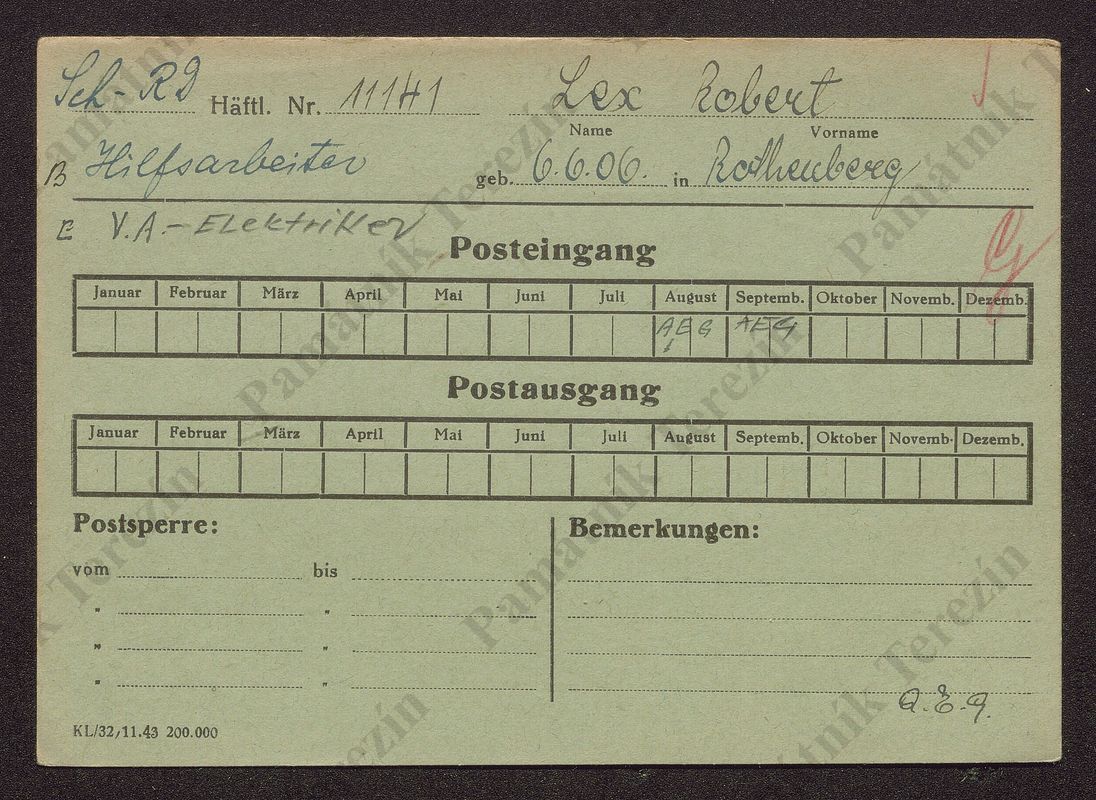 Sch-RD Häftl. Nr. 11141 Lex Robert
Name Vorname
B Hilfsarbeiter geb. 6.6.06. in Rothenberg
E V.A.-Elektriker
Posteingang
Januar Februar März April Mai Juni Juli August Septemb. Oktober Novemb. Dezemb.
AEG AEG
Postausgang
Januar Februar März April Mai Juni Juli August Septemb. Oktober Novemb. Dezemb.
Postsperre: Bemerkungen:
vom bis
" "
" "
" "
a.E.g.
KL/32/11.43 200.000
Památník Terezín